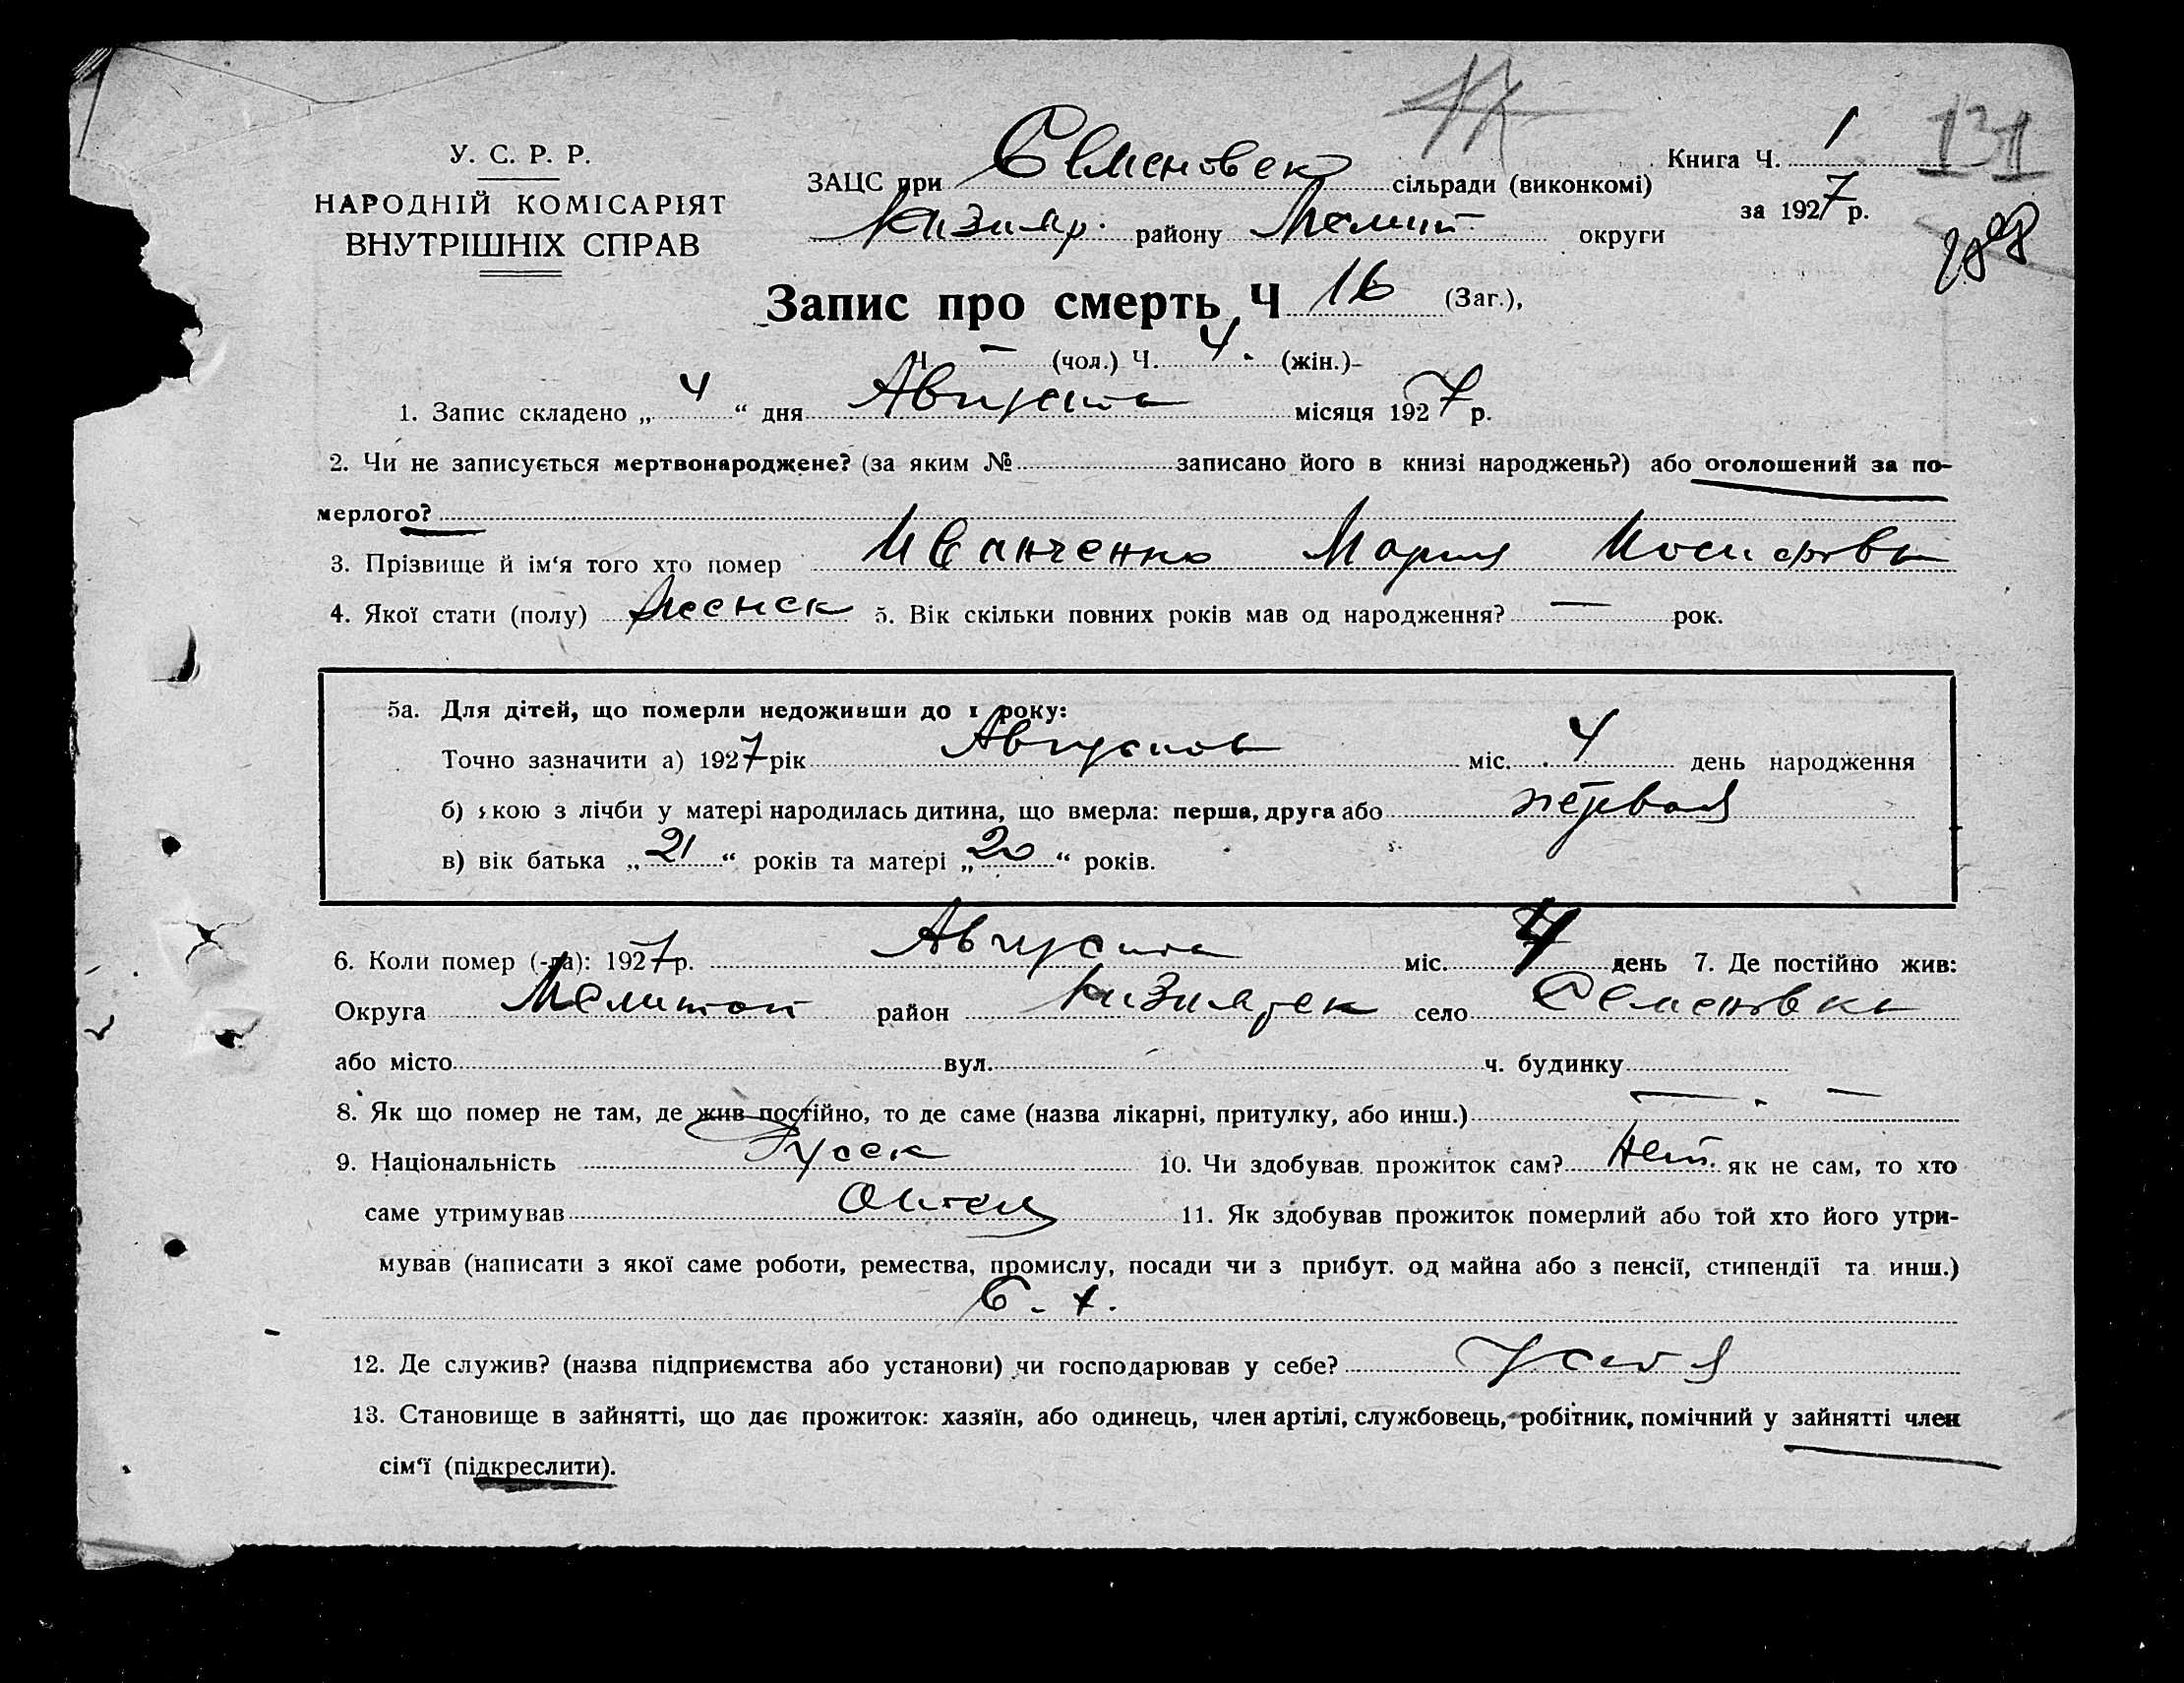 У. С. Р. Р.
НАРОДНІЙ КОМІСАРІЯТ
ВНУТРІШНІХ СПРАВ
Книга Ч. 1 131
ЗАЦС при Семеновск сільради (виконкомі)
за 1927 р.
Кизияр. району Мелит. округи
Запис про смерть Ч 16 (Заг.),
Ч — (чол.) Ч. 4. (жін.)
1. Запис складено „ 4 “ дня Августа місяця 1927 р.
2. Чи не записується мертвонароджене? (за яким № записано його в книзі народжень?) або оголошений за по-
мерлого?
3. Прізвище й ім‘я того хто помер Иванченко Мария Иосифовн
4. Якої стати (полу) Женск 5. Вік скільки повних років мав од народження? — рок.
5а. Для дітей, що померли недоживши до 1 року:
Точно зазначити а) 1927 рік Августа міс. 4 день народження
б) якою з лічби у матері народилась дитина, що вмерла: перша, друга або первая
в) вік батька „ 21 “ років та матері „ 20 “ років.
6. Коли помер (-ла): 1927 р. Августа міс. 4 день 7. Де постійно жив:
Округа Мелитоп район Кизиярск село Семеновка
або місто вул. ч. будинку
8. Як що помер не там, де жив постійно, то де саме (назва лікарні, притулку, або инш.) —
9. Національність Русск 10. Чи здобував прожиток сам? Нет. як не сам, то хто
саме утримував Отец 11. Як здобував прожиток померлий або той хто його утри-
мував (написати з якої саме роботи, ремества, промислу, посади чи з прибут. од майна або з пенсії, стипендії та инш.)
С. х.
12. Де служив? (назва підприємства або установи) чи господарював у себе? У себя
13. Становище в зайнятті, що дає прожиток: хазяїн, або одинець, член артілі, службовець, робітник, помічний у зайнятті член
сім‘ї (підкреслити).